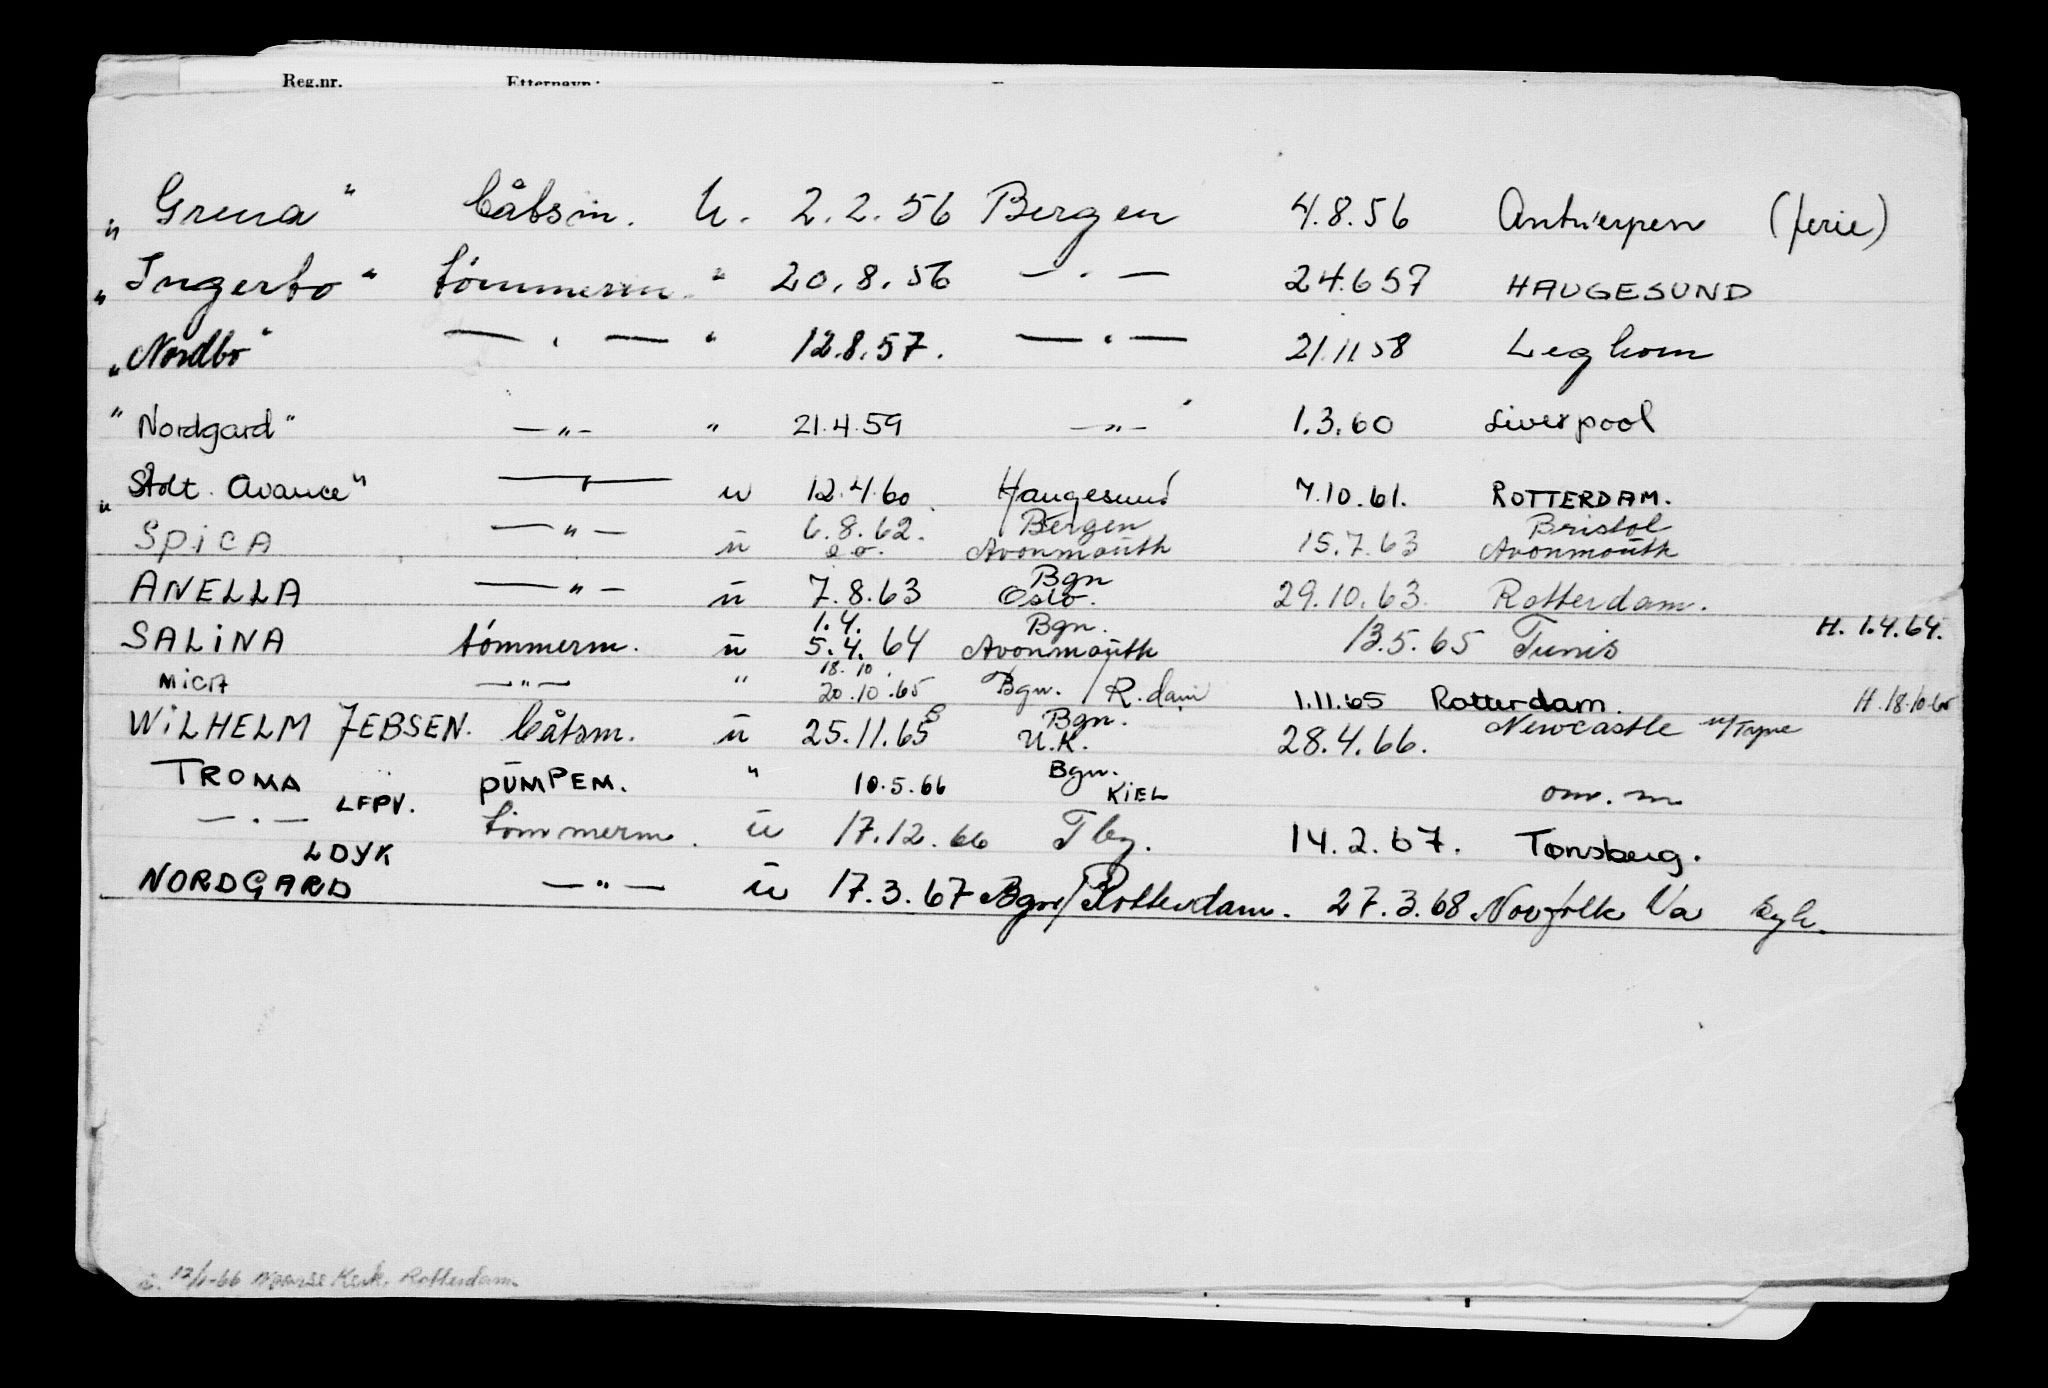 Reg.nr. Etternavn:
"Grena" båtsm. U. 2.2.56 Bergen 4.8.56 Antwerpen (ferie)
"Ingerto" tømmerm. " 20.8.56 — . — 24.6 57 HAUGESUND
"Nordbo" — . — " 12.8.57. — . — 21.11 58 Leghorn
"Nordgard" — " — " 21.4.59 — " — 1.3.60 Liverpool
"Stolt Avance" — " — u 12.4.60 Haugesund 7.10.61. ROTTERDAM.
SPiCA — " — ü 6.8.62. Bergen 15.7.63 Bristol
Avonmoüth Avonmoüth
ANELLA — " — ü 7.8.63 Bgn Oslo. 29.10.63. Rotterdam.
SALiNA tømmerm. ü 1.4. 5.4.64 Bgn. Avonmoüth 13.5.65 Tunis H. 1.4.64.
MiCA — " — " 18.10. 20.10.65 Bgn. / R.dam 1.11.65 Rotterdam. H. 18.10.65
WiLHELM JEBSEN. båtsm. ü 25.11.65 Bgn. U.K. 28.4.66. Newcastle u/Tyne
TROMA LFPV. PÜMPEM. " 10.5.66 Bgn. KiEL om. m
— . — tømmerm. ü 17.12.66 Tbg. 14.2.67. Tønsberg.
LDYK
NORDGARD — " — ü 17.3.67 Bgn/Rotterdam. 27.3.68 Norfolk Va syk.
12/1-66 Noorse Kerk. Rotterdam.